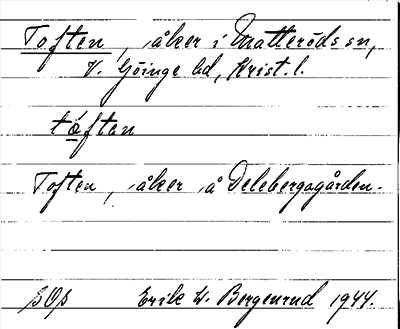 Toften, åker i Matteröds sn,
V. Göinge hd, Krist. l.
tóften
Toften, åker å Delebergagården.
Erik W. Bergenrud 1944.